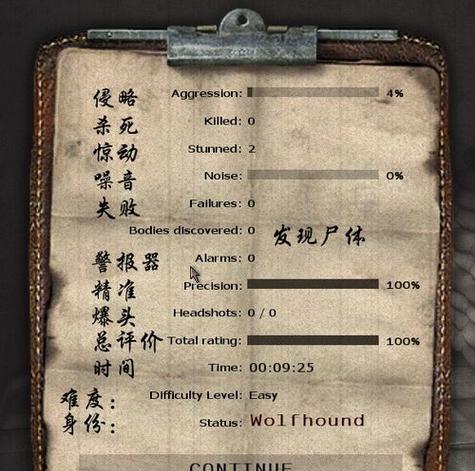 侵略 Aggression: 4%
杀死 Killed: 0
惊动 Stunned: 2
噪音 Noise: 0%
失败 Failures: 0
Bodies discovered: 0 发现尸体
警报器 Alarms: 0
精准 Precision: 100%
爆头 Headshots: 0 / 0
总评价 Total rating: 100%
时间 Time: 00:09:25
难度： Difficulty Level: Easy
身份： Status: Wolfhound
CONTINUE